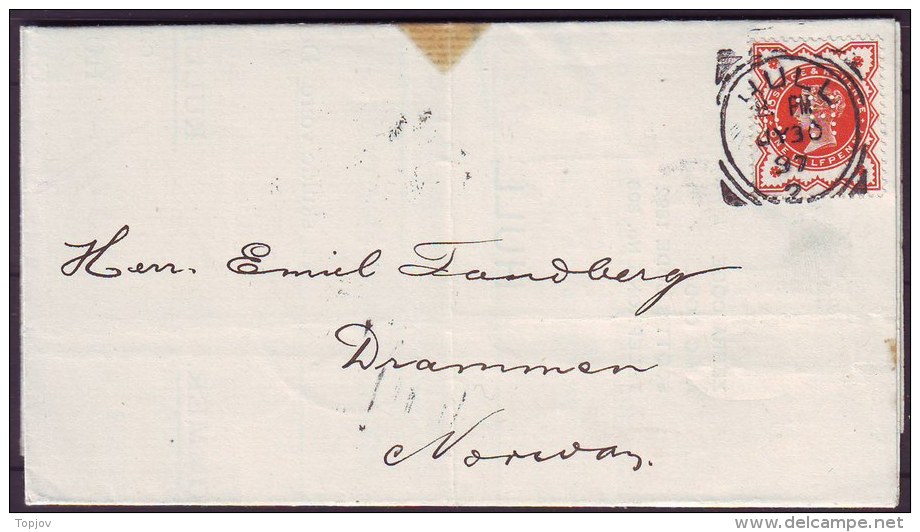 HULL
PM
JY 30
97
2
POSTAGE & REVENUE
ONE HALFPENNY
Herr. Emil Tandberg
Drammen
Norway.
Topjov
delcampe.net